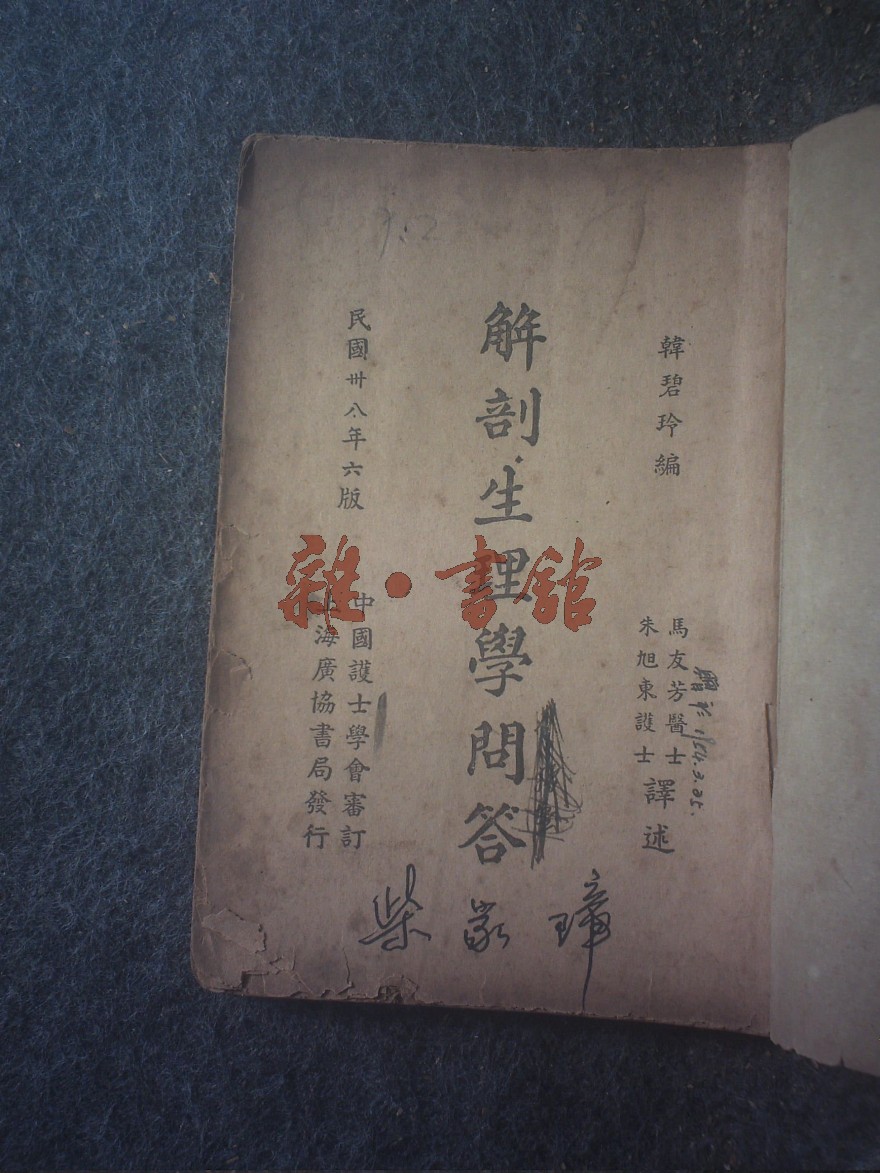 韓碧玲編
馬友芳醫士
朱旭東護士
譯述
解剖生理學問答
民國卅八年六版
中國護士學會審訂
上海廣協書局發行
雜·書館